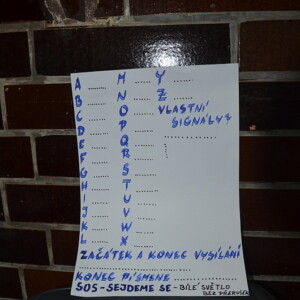 A ........ M ....... Y .......
B ........ N ....... Z .......
C ........ O ....... VLASTNÍ
D ........ P ....... SIGNÁLY?
E ........ Q .......
F ........ R .......
G ........ S .......
H ........ T .......
I ........ U .......
J ........ V .......
K ........ W .......
L ........ X .......
ZAČÁTEK A KONEC VYSÍLÁNÍ
KONEC PÍSMENE ..............
SOS - SEJDEME SE - BÍLÉ SVĚTLO
BEZ